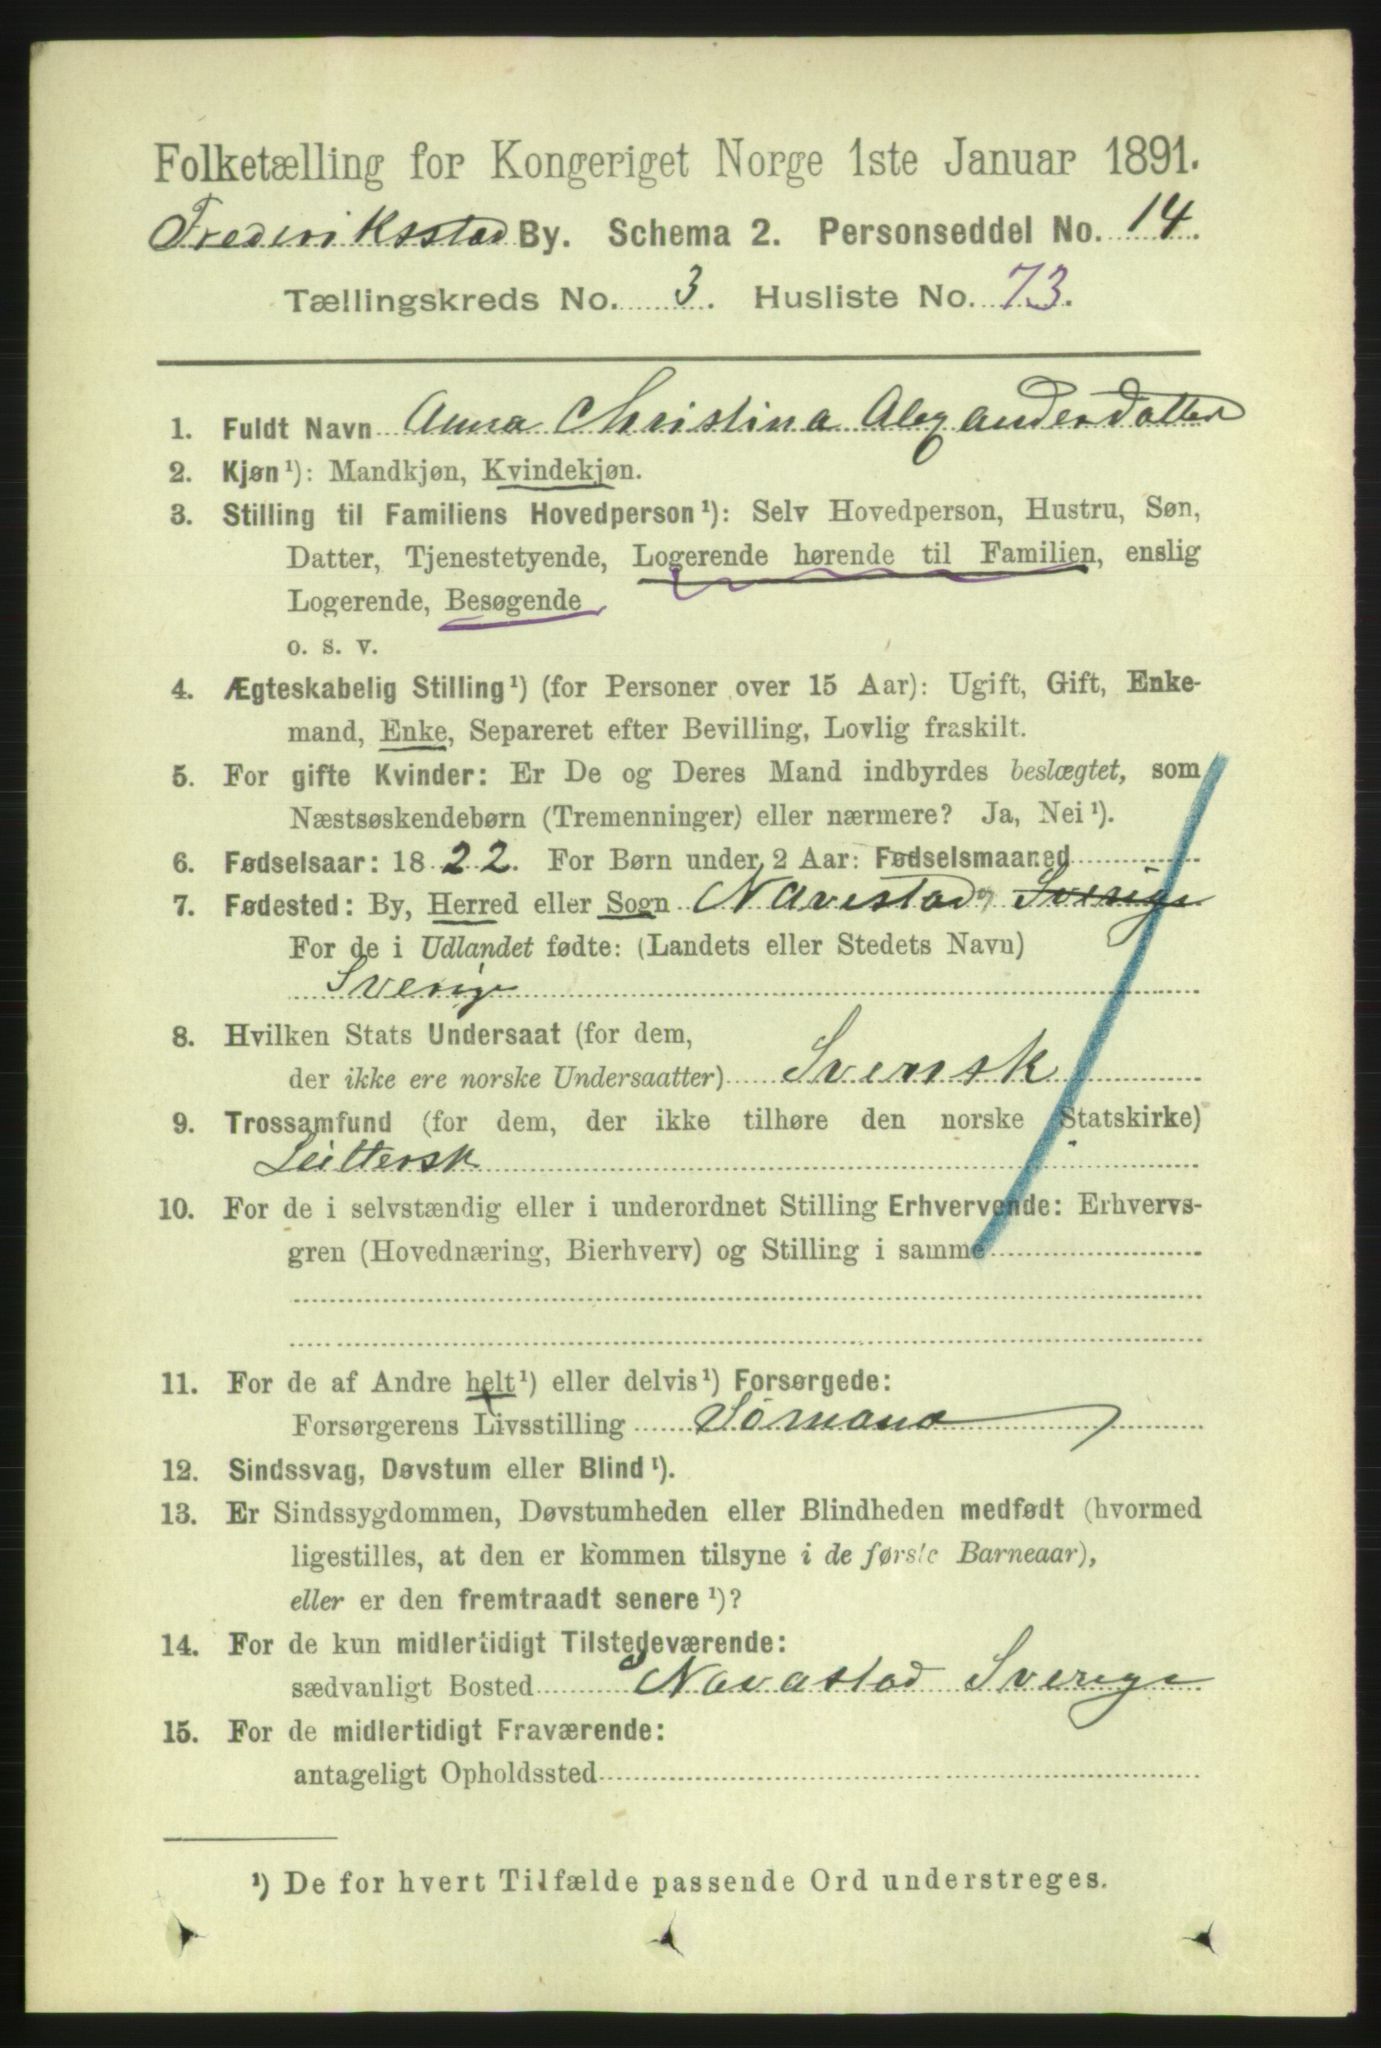 Folketælling for Kongeriget Norge 1ste Januar 1891.
Frederiksstad By. Schema 2. Personseddel No. 14.
Tællingskreds No. 3. Husliste No. 73.
1. Fuldt Navn Anna Christina Alexanderdatter
2. Kjøn ¹): Mandkjøn, Kvindekjøn.
3. Stilling til Familiens Hovedperson ¹): Selv Hovedperson, Hustru, Søn,
Datter, Tjenestetyende, Logerende hørende til Familien, enslig
Logerende, Besøgende
o. s. v.
4. Ægteskabelig Stilling ¹) (for Personer over 15 Aar): Ugift, Gift, Enke-
mand, Enke, Separeret efter Bevilling, Lovlig fraskilt.
5. For gifte Kvinder: Er De og Deres Mand indbyrdes beslægtet, som
Næstsøskendebørn (Tremenninger) eller nærmere? Ja, Nei ¹).
6. Fødselsaar: 1822. For Børn under 2 Aar: Fødselsmaaned
7. Fødested: By, Herred eller Sogn Navestad, Sverige
For de i Udlandet fødte: (Landets eller Stedets Navn)
Sverige
8. Hvilken Stats Undersaat (for dem,
der ikke ere norske Undersaatter) Svensk
9. Trossamfund (for dem, der ikke tilhøre den norske Statskirke)
Luttersk
10. For de i selvstændig eller i underordnet Stilling Erhvervende: Erhvervs-
gren (Hovednæring, Bierhverv) og Stilling i samme
11. For de af Andre helt ¹) eller delvis ¹) Forsørgede:
Forsørgerens Livsstilling Sømand
12. Sindssvag, Døvstum eller Blind ¹).
13. Er Sindssygdommen, Døvstumheden eller Blindheden medfødt (hvormed
ligestilles, at den er kommen tilsyne i de første Barneaar),
eller er den fremtraadt senere ¹)?
14. For de kun midlertidigt Tilstedeværende:
sædvanligt Bosted Navastad Sverige
15. For de midlertidigt Fraværende:
antageligt Opholdssted
¹) De for hvert Tilfælde passende Ord understreges.